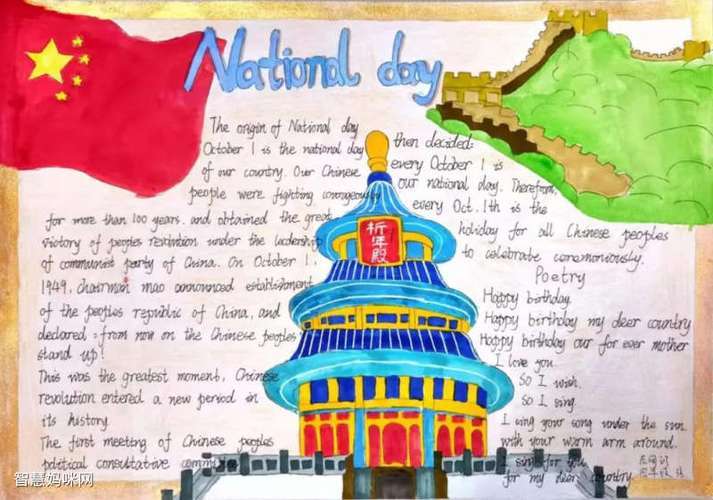 National day
The origin of National day
October 1 is the national day
of our country. Our Chinese
people were fighting courageously
for more than 100 years. and obtained the great
victory of peoples revolution under the leadership
of communist party of China. On October 1,
1949, Chairman mao announced establishment
of the peoples republic of China, and
declared: from now on the Chinese peoples
stand up!
This was the greatest moment, Chinese
revolution entered a new period in
its history
The first meeting of Chinese peoples
political consultative committee
then decided:
every October 1 is
our national day. Therefore,
every Oct. 1th is the
holiday for all Chinese peoples
to celebrate ceremoniously.
祈年殿
Poetry
Happy birthday
Happy birthday my deer country
Happy birthday our for ever mother
I love you
So I wish
So I sing
I wing your song under the sun
with your warm arm around
I sing for you
for my deer country
智慧妈咪网